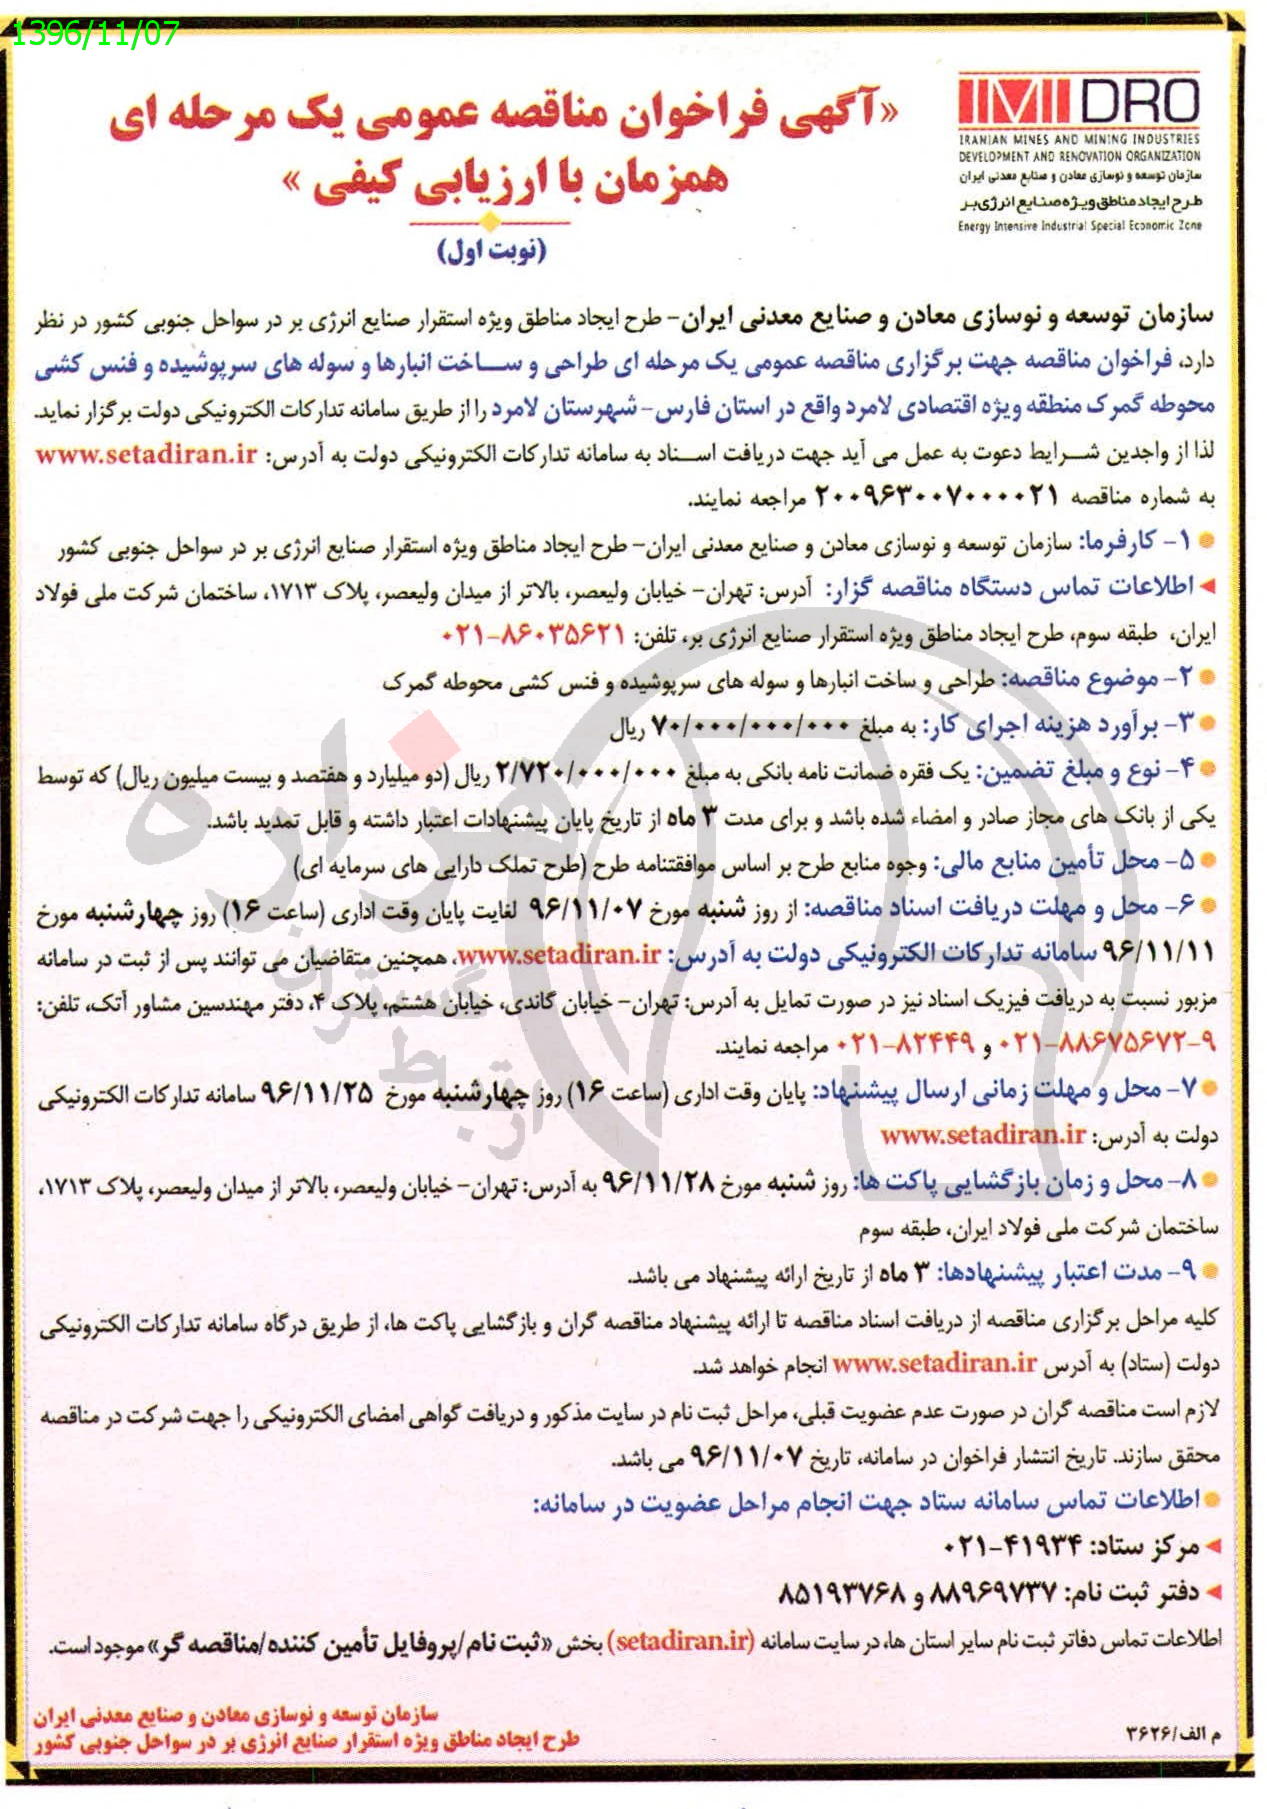 1396/11/07
IMIDRO
IRANIAN MINES AND MINING INDUSTRIES
DEVELOPMENT AND RENOVATION ORGANIZATION
سازمان توسعه و نوسازی معادن و صنایع معدنی ایران
طرح ایجاد مناطق ویژه صنایع انرژی بر
Energy Intensive Industrial Special Economic Zone
«آگهی فراخوان مناقصه عمومی یک مرحله ای
همزمان با ارزیابی کیفی »
(نوبت اول)
سازمان توسعه و نوسازی معادن و صنایع معدنی ایران- طرح ایجاد مناطق ویژه استقرار صنایع انرژی بر در سواحل جنوبی کشور در نظر
دارد، فراخوان مناقصه جهت برگزاری مناقصه عمومی یک مرحله ای طراحی و ساخت انبارها و سوله های سرپوشیده و فنس کشی
محوطه گمرک منطقه ویژه اقتصادی لامرد واقع در استان فارس- شهرستان لامرد را از طریق سامانه تدارکات الکترونیکی دولت برگزار نماید.
لذا از واجدین شرایط دعوت به عمل می آید جهت دریافت اسناد به سامانه تدارکات الکترونیکی دولت به آدرس: www.setadiran.ir
به شماره مناقصه ۲۰۰۹۶۳۰۰۷۰۰۰۰۲۱ مراجعه نمایند.
۱- کارفرما: سازمان توسعه و نوسازی معادن و صنایع معدنی ایران- طرح ایجاد مناطق ویژه استقرار صنایع انرژی بر در سواحل جنوبی کشور
اطلاعات تماس دستگاه مناقصه گزار: آدرس: تهران- خیابان ولیعصر، بالاتر از میدان ولیعصر، پلاک ۱۷۱۳، ساختمان شرکت ملی فولاد
ایران، طبقه سوم، طرح ایجاد مناطق ویژه استقرار صنایع انرژی بر، تلفن: ۸۶۰۳۵۶۲۱-۰۲۱
۲- موضوع مناقصه: طراحی و ساخت انبارها و سوله های سرپوشیده و فنس کشی محوطه گمرک
۳- برآورد هزینه اجرای کار: به مبلغ ۷۰/۰۰۰/۰۰۰/۰۰۰ ریال
۴- نوع و مبلغ تضمین: یک فقره ضمانت نامه بانکی به مبلغ ۲/۷۲۰/۰۰۰/۰۰۰ ریال (دو میلیارد و هفتصد و بیست میلیون ریال) که توسط
یکی از بانک های مجاز صادر و امضاء شده باشد و برای مدت ۳ ماه از تاریخ پایان پیشنهادات اعتبار داشته و قابل تمدید باشد.
۵- محل تأمین منابع مالی: وجوه منابع طرح بر اساس موافقتنامه طرح (طرح تملک دارایی های سرمایه ای)
۶- محل و مهلت دریافت اسناد مناقصه: از روز شنبه مورخ ۹۶/۱۱/۰۷ لغایت پایان وقت اداری (ساعت ۱۶) روز چهارشنبه مورخ
۹۶/۱۱/۱۱ سامانه تدارکات الکترونیکی دولت به آدرس: www.setadiran.ir، همچنین متقاضیان می توانند پس از ثبت در سامانه
مزبور نسبت به دریافت فیزیک اسناد نیز در صورت تمایل به آدرس: تهران- خیابان گاندی، خیابان هشتم، پلاک ۴، دفتر مهندسین مشاور آتک، تلفن:
۹-۸۸۶۷۵۶۷۲-۰۲۱ و ۸۲۴۴۹-۰۲۱ مراجعه نمایند.
۷- محل و مهلت زمانی ارسال پیشنهاد: پایان وقت اداری (ساعت ۱۶) روز چهارشنبه مورخ ۹۶/۱۱/۲۵ سامانه تدارکات الکترونیکی
دولت به آدرس: www.setadiran.ir
۸- محل و زمان بازگشایی پاکت ها: روز شنبه مورخ ۹۶/۱۱/۲۸ به آدرس: تهران- خیابان ولیعصر، بالاتر از میدان ولیعصر، پلاک ۱۷۱۳،
ساختمان شرکت ملی فولاد ایران، طبقه سوم
۹- مدت اعتبار پیشنهادها: ۳ ماه از تاریخ ارائه پیشنهاد می باشد.
کلیه مراحل برگزاری مناقصه از دریافت اسناد مناقصه تا ارائه پیشنهاد مناقصه گران و بازگشایی پاکت ها، از طریق درگاه سامانه تدارکات الکترونیکی
دولت (ستاد) به آدرس www.setadiran.ir انجام خواهد شد.
لازم است مناقصه گران در صورت عدم عضویت قبلی، مراحل ثبت نام در سایت مذکور و دریافت گواهی امضای الکترونیکی را جهت شرکت در مناقصه
محقق سازند. تاریخ انتشار فراخوان در سامانه، تاریخ ۹۶/۱۱/۰۷ می باشد.
اطلاعات تماس سامانه ستاد جهت انجام مراحل عضویت در سامانه:
مرکز ستاد: ۴۱۹۳۴-۰۲۱
دفتر ثبت نام: ۸۸۹۶۹۷۳۷ و ۸۵۱۹۳۷۶۸
اطلاعات تماس دفاتر ثبت نام سایر استان ها، در سایت سامانه (setadiran.ir) بخش «ثبت نام/پروفایل تأمین کننده/مناقصه گر» موجود است.
سازمان توسعه و نوسازی معادن و صنایع معدنی ایران
طرح ایجاد مناطق ویژه استقرار صنایع انرژی بر در سواحل جنوبی کشور
م الف/۳۶۲۶